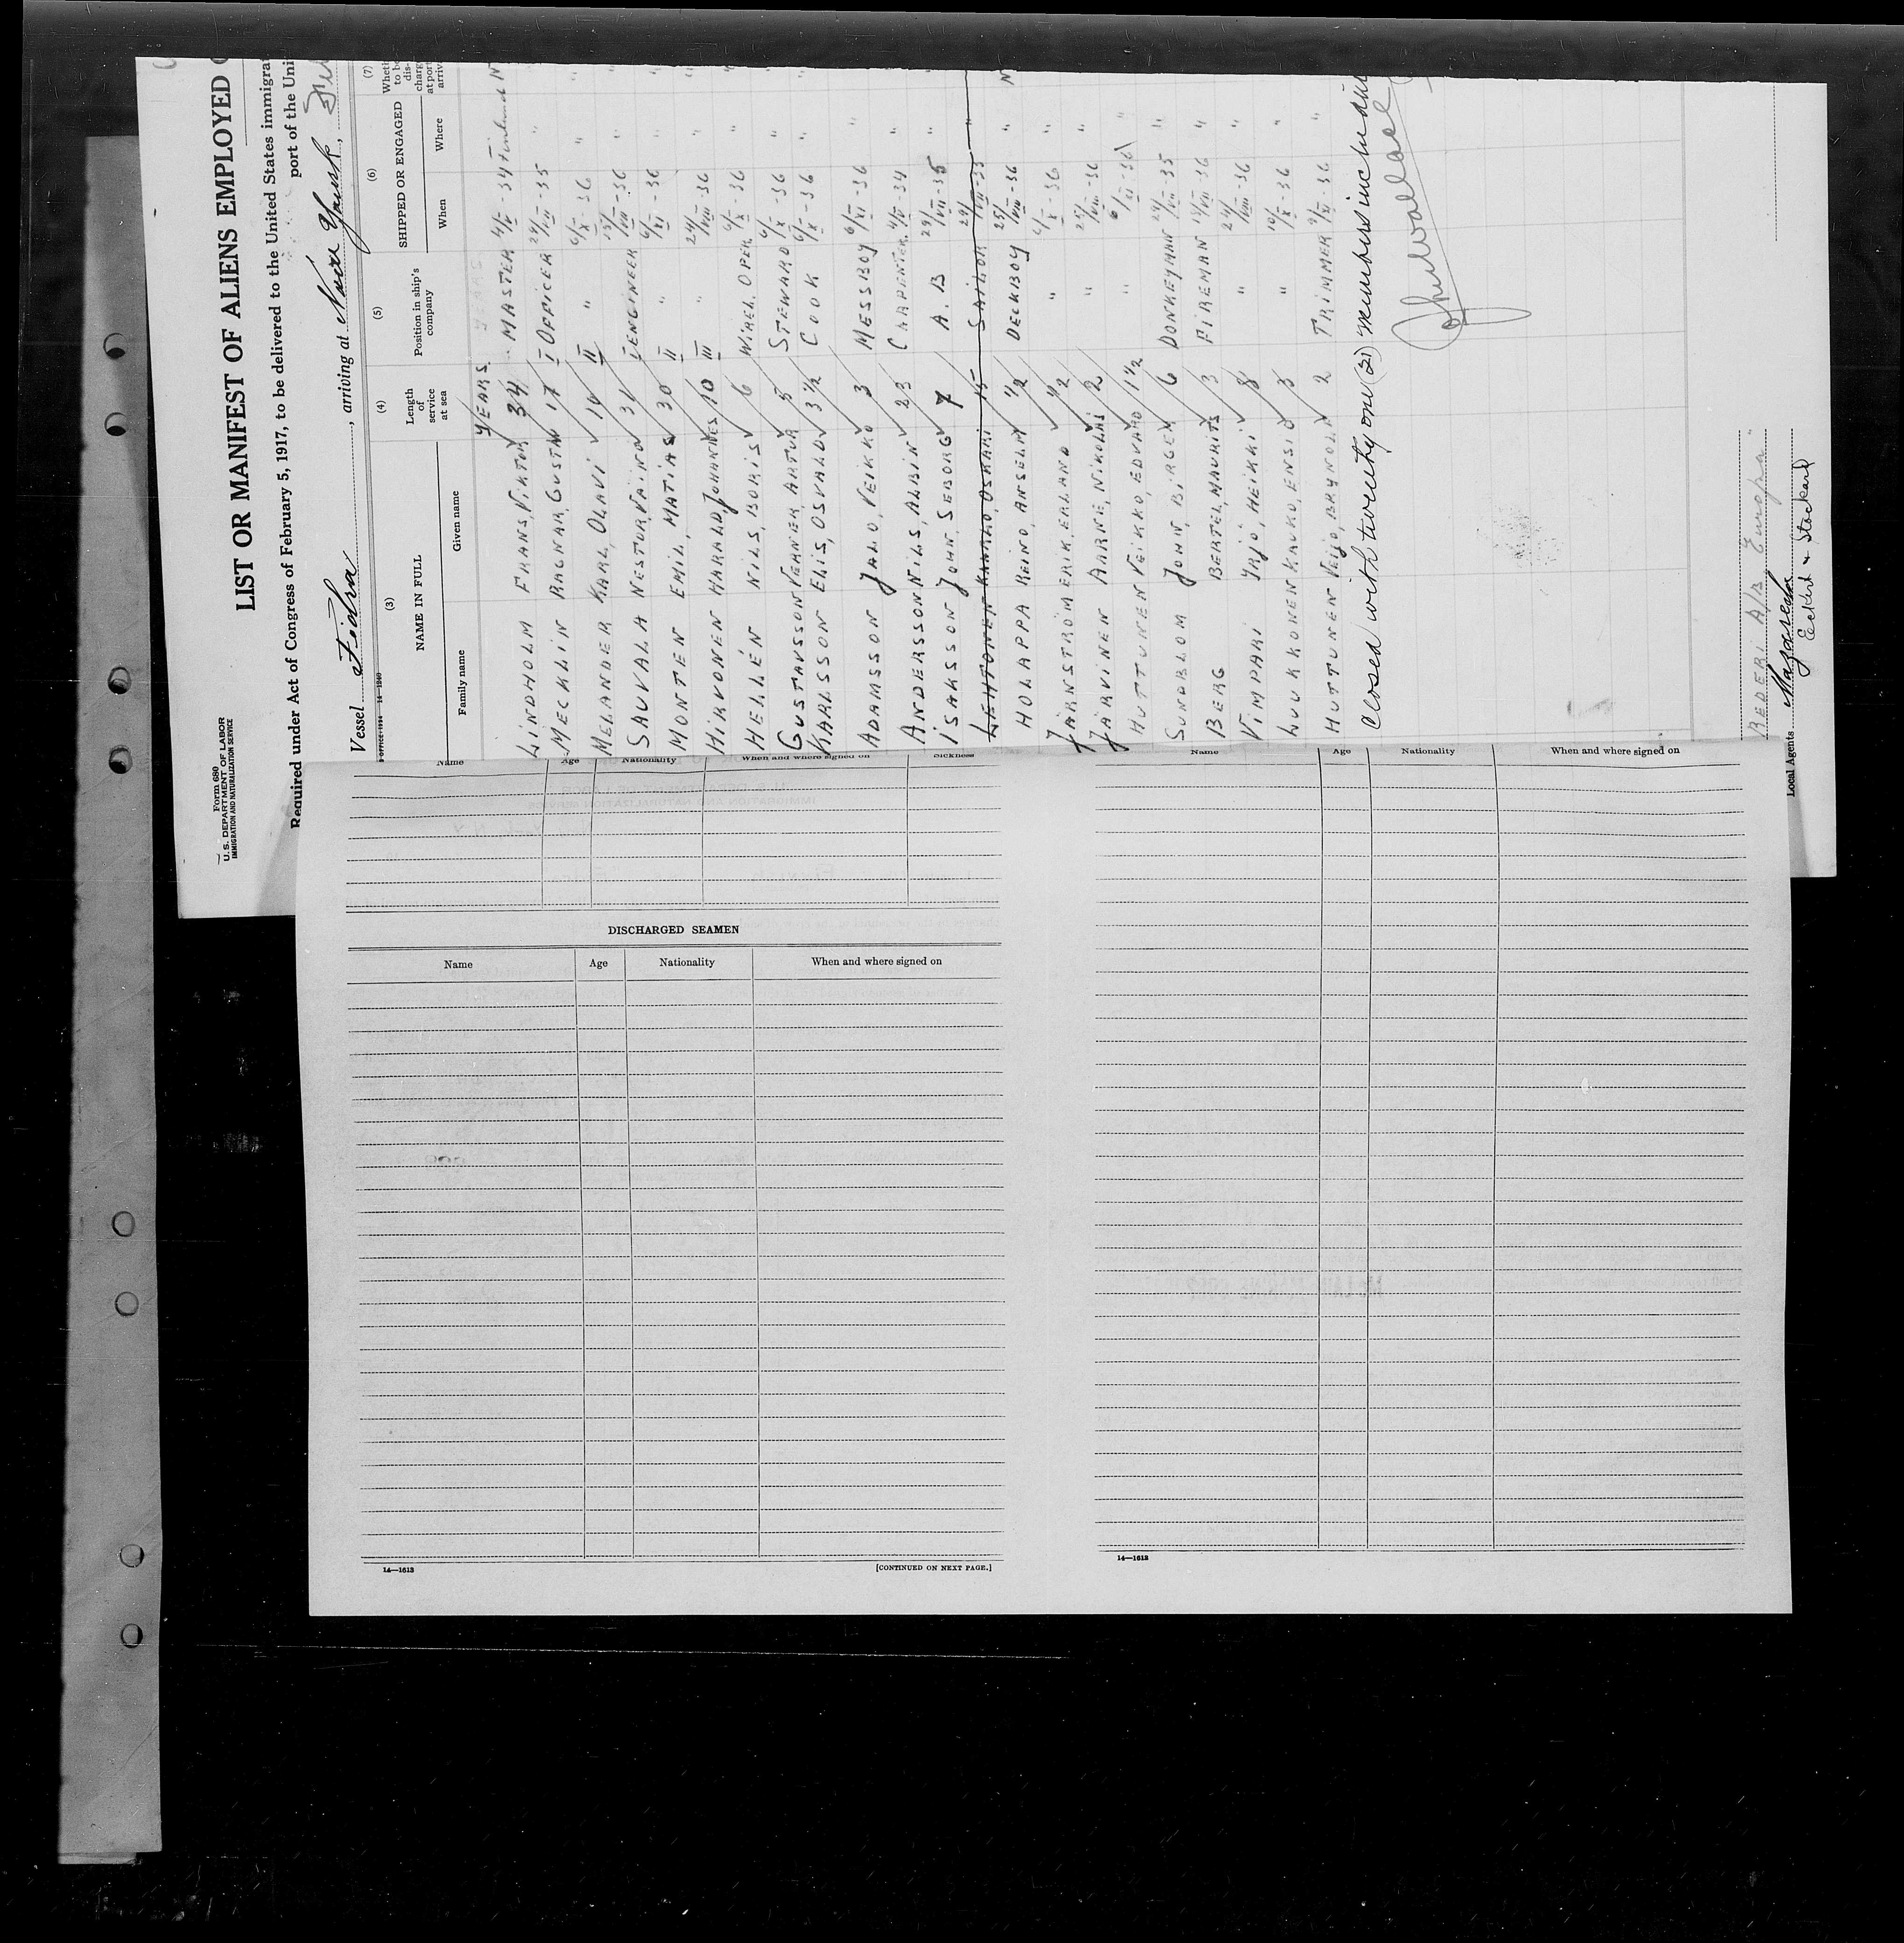 Form 680
U. S. DEPARTMENT OF LABOR
IMMIGRATION AND NATURALIZATION SERVICE
LIST OR MANIFEST OF ALIENS EMPLOYED
Required under Act of Congress of February 5, 1917, to be delivered to the United States immigra
port of the Uni
Vessel Fidra, arriving at New York,
14—1240
(3) (4) (5) (6) (7)
NAME IN FULL
Family name Given name
Length of service at sea
Position in ship's company
SHIPPED OR ENGAGED
When Where
YEARS
LINDHOLM FRANS, VIKTOR 34 MASTER 4/V - 34 Finland
MECKLIN RAGNAR, GUSTAV 17 I OFFICER 24/VII - 35 "
MELANDER KARL, OLAVI 14 II " 6/X - 36 "
SAUVALA NESTOR, VÄINÖ 31 I ENGINEER 15/VIII - 36 "
MONTEN EMIL, MATIAS 30 II " 6/XI - 36 "
HIRVONEN HARALD, JOHANNES 10 III " 24/VIII - 36 "
HELLÉN NILS, BORIS 6 WIREL. OPER. 6/X - 36 "
GUSTAVSSON VERNER, ARTUR 5 STEWARD 6/X - 36 "
KARLSSON ELIS, OSVALD 3 1/2 COOK 6/X - 36 "
ADAMSSON JALO, VEIKKO 3 MESSBOY 6/XI - 36 "
ANDERSSON NILS, ALBIN 23 CARPENTER. 4/V - 34 "
ISAKSSON JOHN, SEBORG 7 A. B 29/VII - 35 "
LEHTONEN KAARLO, OSKARI 15 SAILOR 29/VII - 35 "
HOLAPPA REINO, ANSELM 1/2 DECKBOY 25/VIII - 36 "
JÄRNSTRÖM ERIK, ERLAND 1/2 " 6/X - 36 "
JÄRVINEN AARNE, NIKOLAI 2 " 25/VIII - 36 "
HUTTUNEN VEIKKO, EDVARD 1 1/2 " 6/XI - 36 "
SUNDBLOM JOHN, BIRGER 6 DONKEYMAN 24/VII - 35 "
BERG BERTEL, MAURITS 3 FIREMAN 15/VIII - 36 "
VIMPARI YRJÖ, HEIKKI 8 " 24/VIII - 36 "
LUUKKONEN KAUKO, ENSIO 3 " 10/X - 36 "
HUTTUNEN VEIJO, BRYNOLF 2 TRIMMER 9/XI - 36 "
Closed with twenty one (21) members including
REDERI A/B "Europa"
Local Agents
Eckert & Stockard
Name Age Nationality When and where signed on Sickness
DISCHARGED SEAMEN
Name Age Nationality When and where signed on
14—1613
[CONTINUED ON NEXT PAGE.]
Name Age Nationality When and where signed on
14—1613